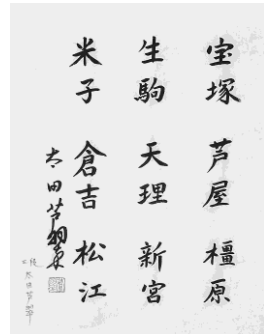 宝塚 芦屋 橿原
生駒 天理 新宮
米子 倉吉 松江
太田芦翠